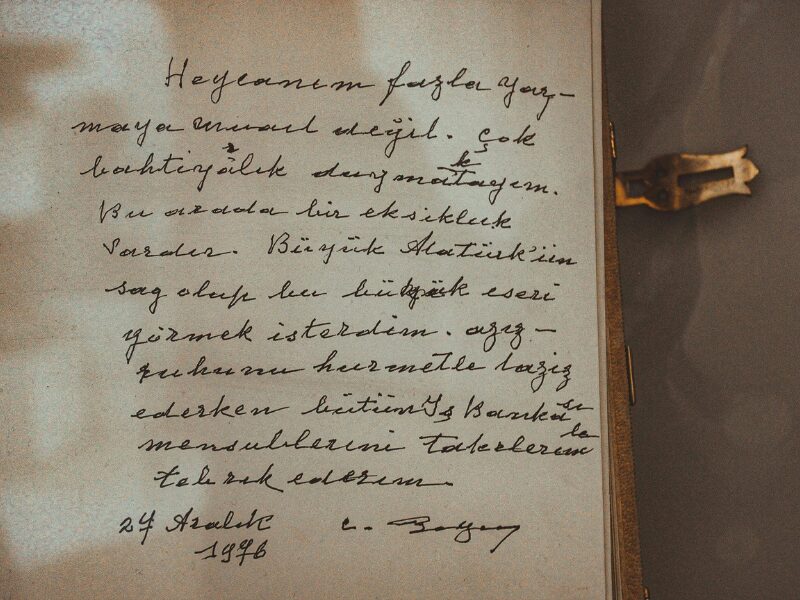 Heycanım fazla yaz-
maya musait değil. çok
bahtiyarlık duymaktayım.
Bu arada bir eksikluk
vardır. Büyük Atatürk'ün
sag olup bu büyük eseri
görmek isterdim. aziz-
ruhunu hurmetle taziz
ederken bütün İş Bankası
mensublerini takrlerimle
tebrik ederim.
27 Aralık c.
1976